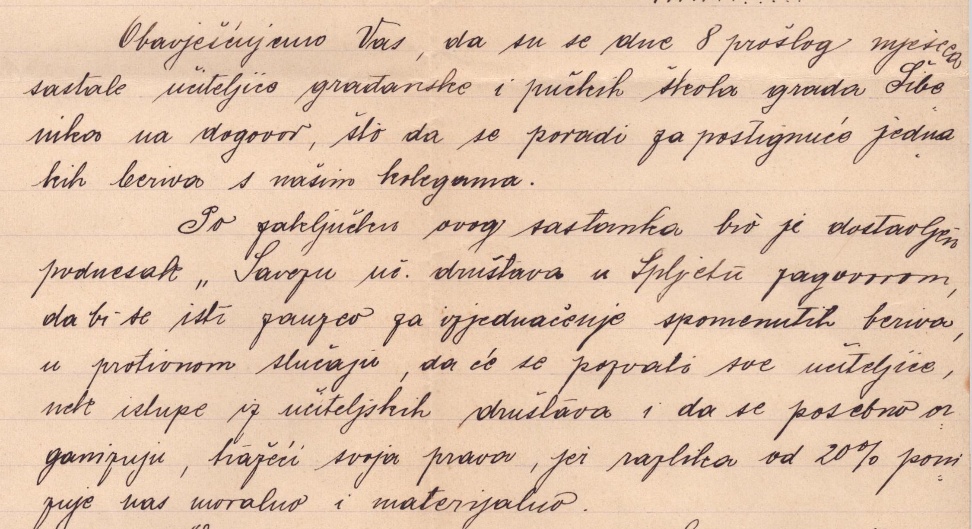 Obavješćujemo Vas, da su se dne 8 prošlog mjeseca
sastale učiteljice građanske i pučkih škola grada Šibe
nika na dogovor, što da se poradi za postignuće jedna
kih beriva s našim kolegama.
Po zaključku ovog sastanka bio je dostavljen
podnesak „ Savezu uč. društava u Spljetu zagovorom,
da bi se isti zauzeo za izjednačenje spomenutih beriva,
u protivnom slučaju, da će se pozvati sve učiteljice,
nek istupe iz učiteljskih društava i da se posebno or
ganizuju, tražeći svoja prava, jer razlika od 20% poni
zuje nas moralno i materijalno.